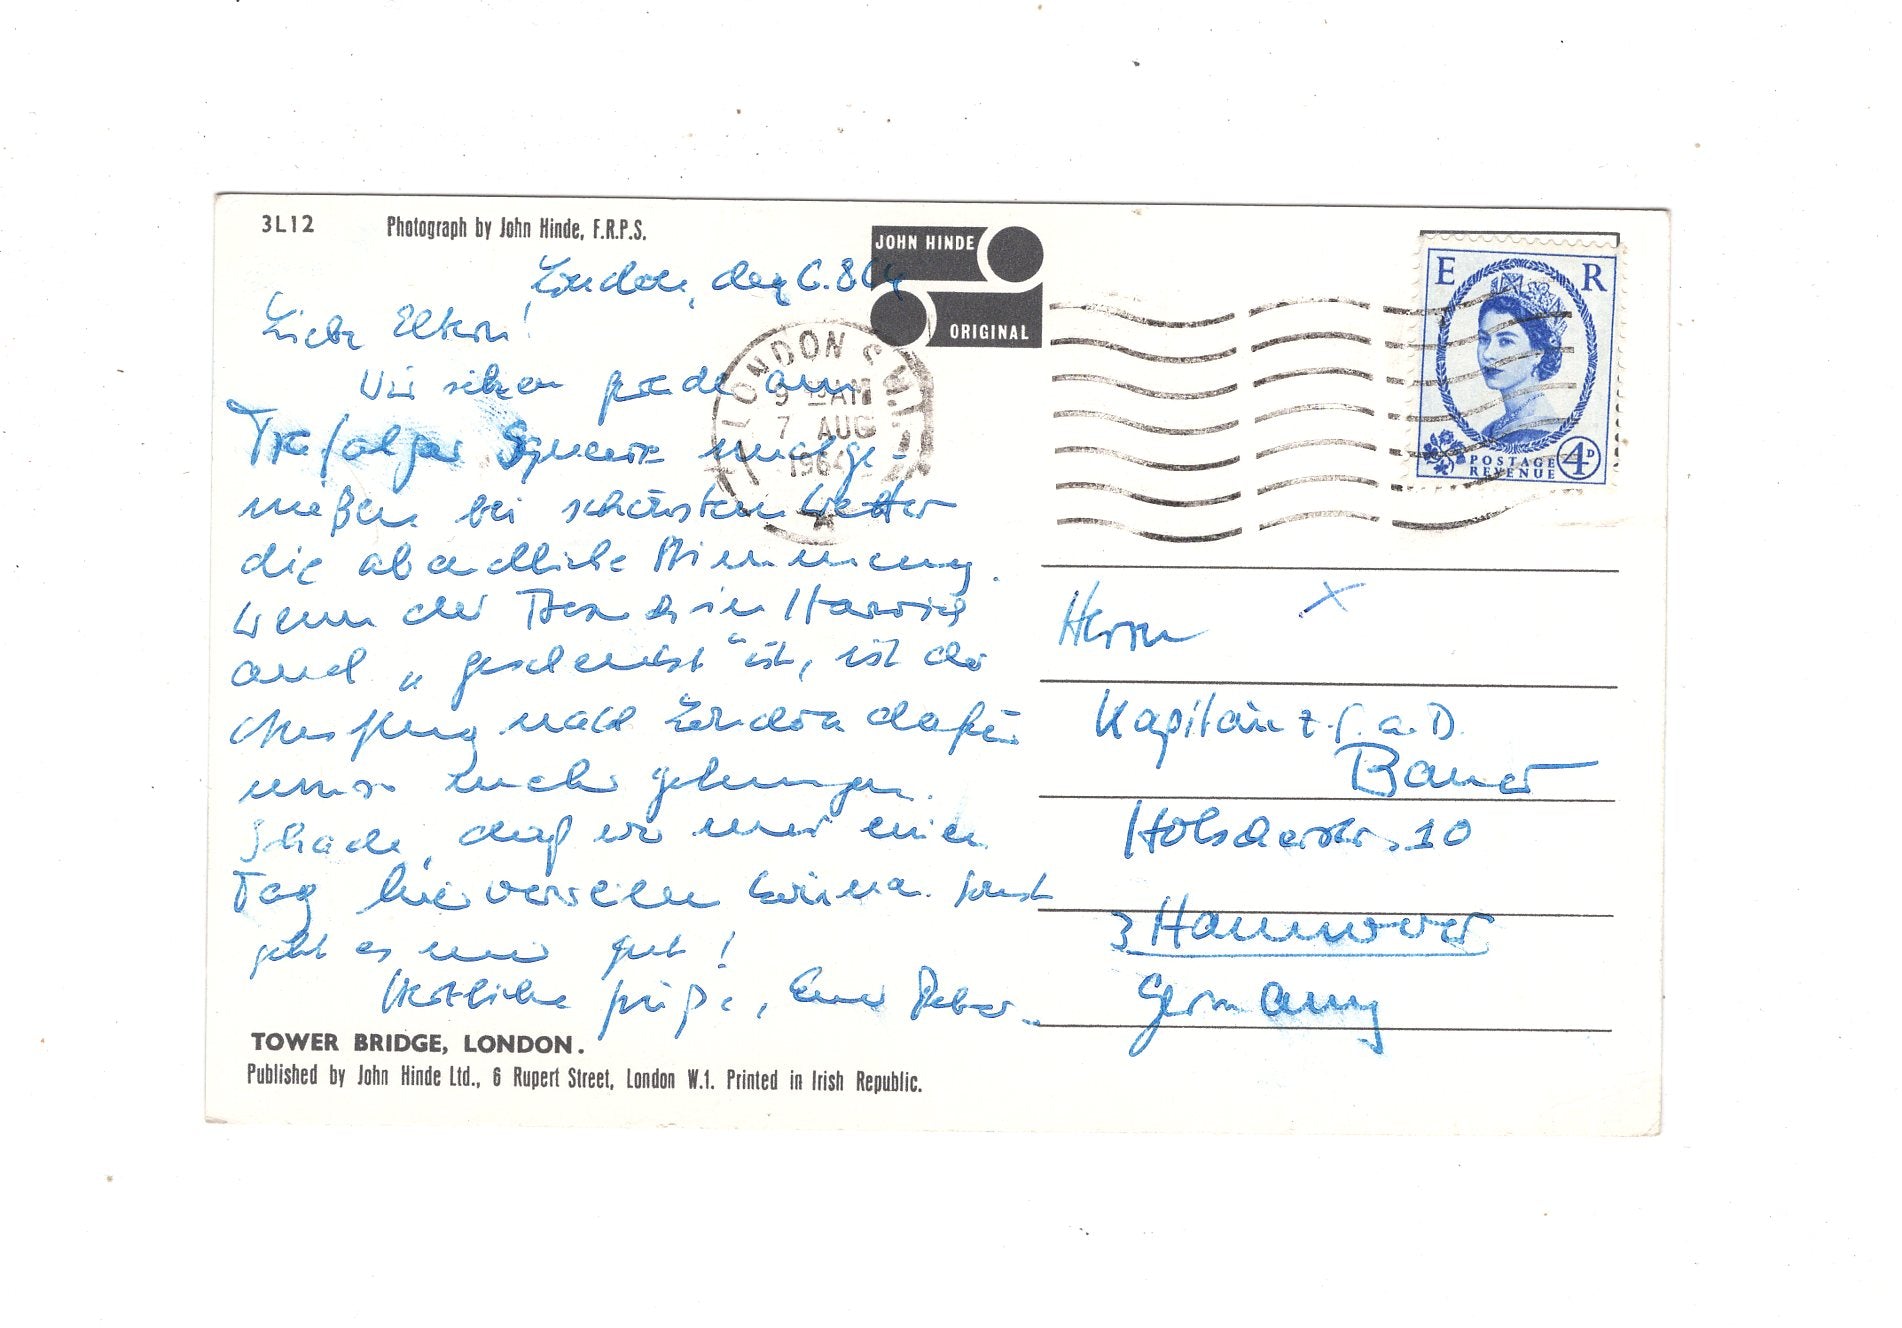 3L12 Photograph by John Hinde, F.R.P.S.
JOHN HINDE
ORIGINAL
London, den 6.8.64
Liebe Eltern!
Wir sitzen grade am
Trafalgar Square und ge-
nießen bei schönstem Wetter
die abendliche Stimmung.
Wenn der in Harwich
auch „ " ist, ist der
Ausflug nach London dafür
gelungen.
Schade, daß wir nur einen
Tag hier verweilen können. Sonst
geht es mir gut!
Herzliche Grüße, Euer Peter.
TOWER BRIDGE, LONDON.
Published by John Hinde Ltd., 6 Rupert Street, London W.1. Printed in Irish Republic.
LONDON S.W.1.
9 15 AM
7 AUG
1964
E R
POSTAGE
REVENUE
4D
Herrn
Kapitän z.S. a.D.
Bauer
10
3 Hannover
Germany